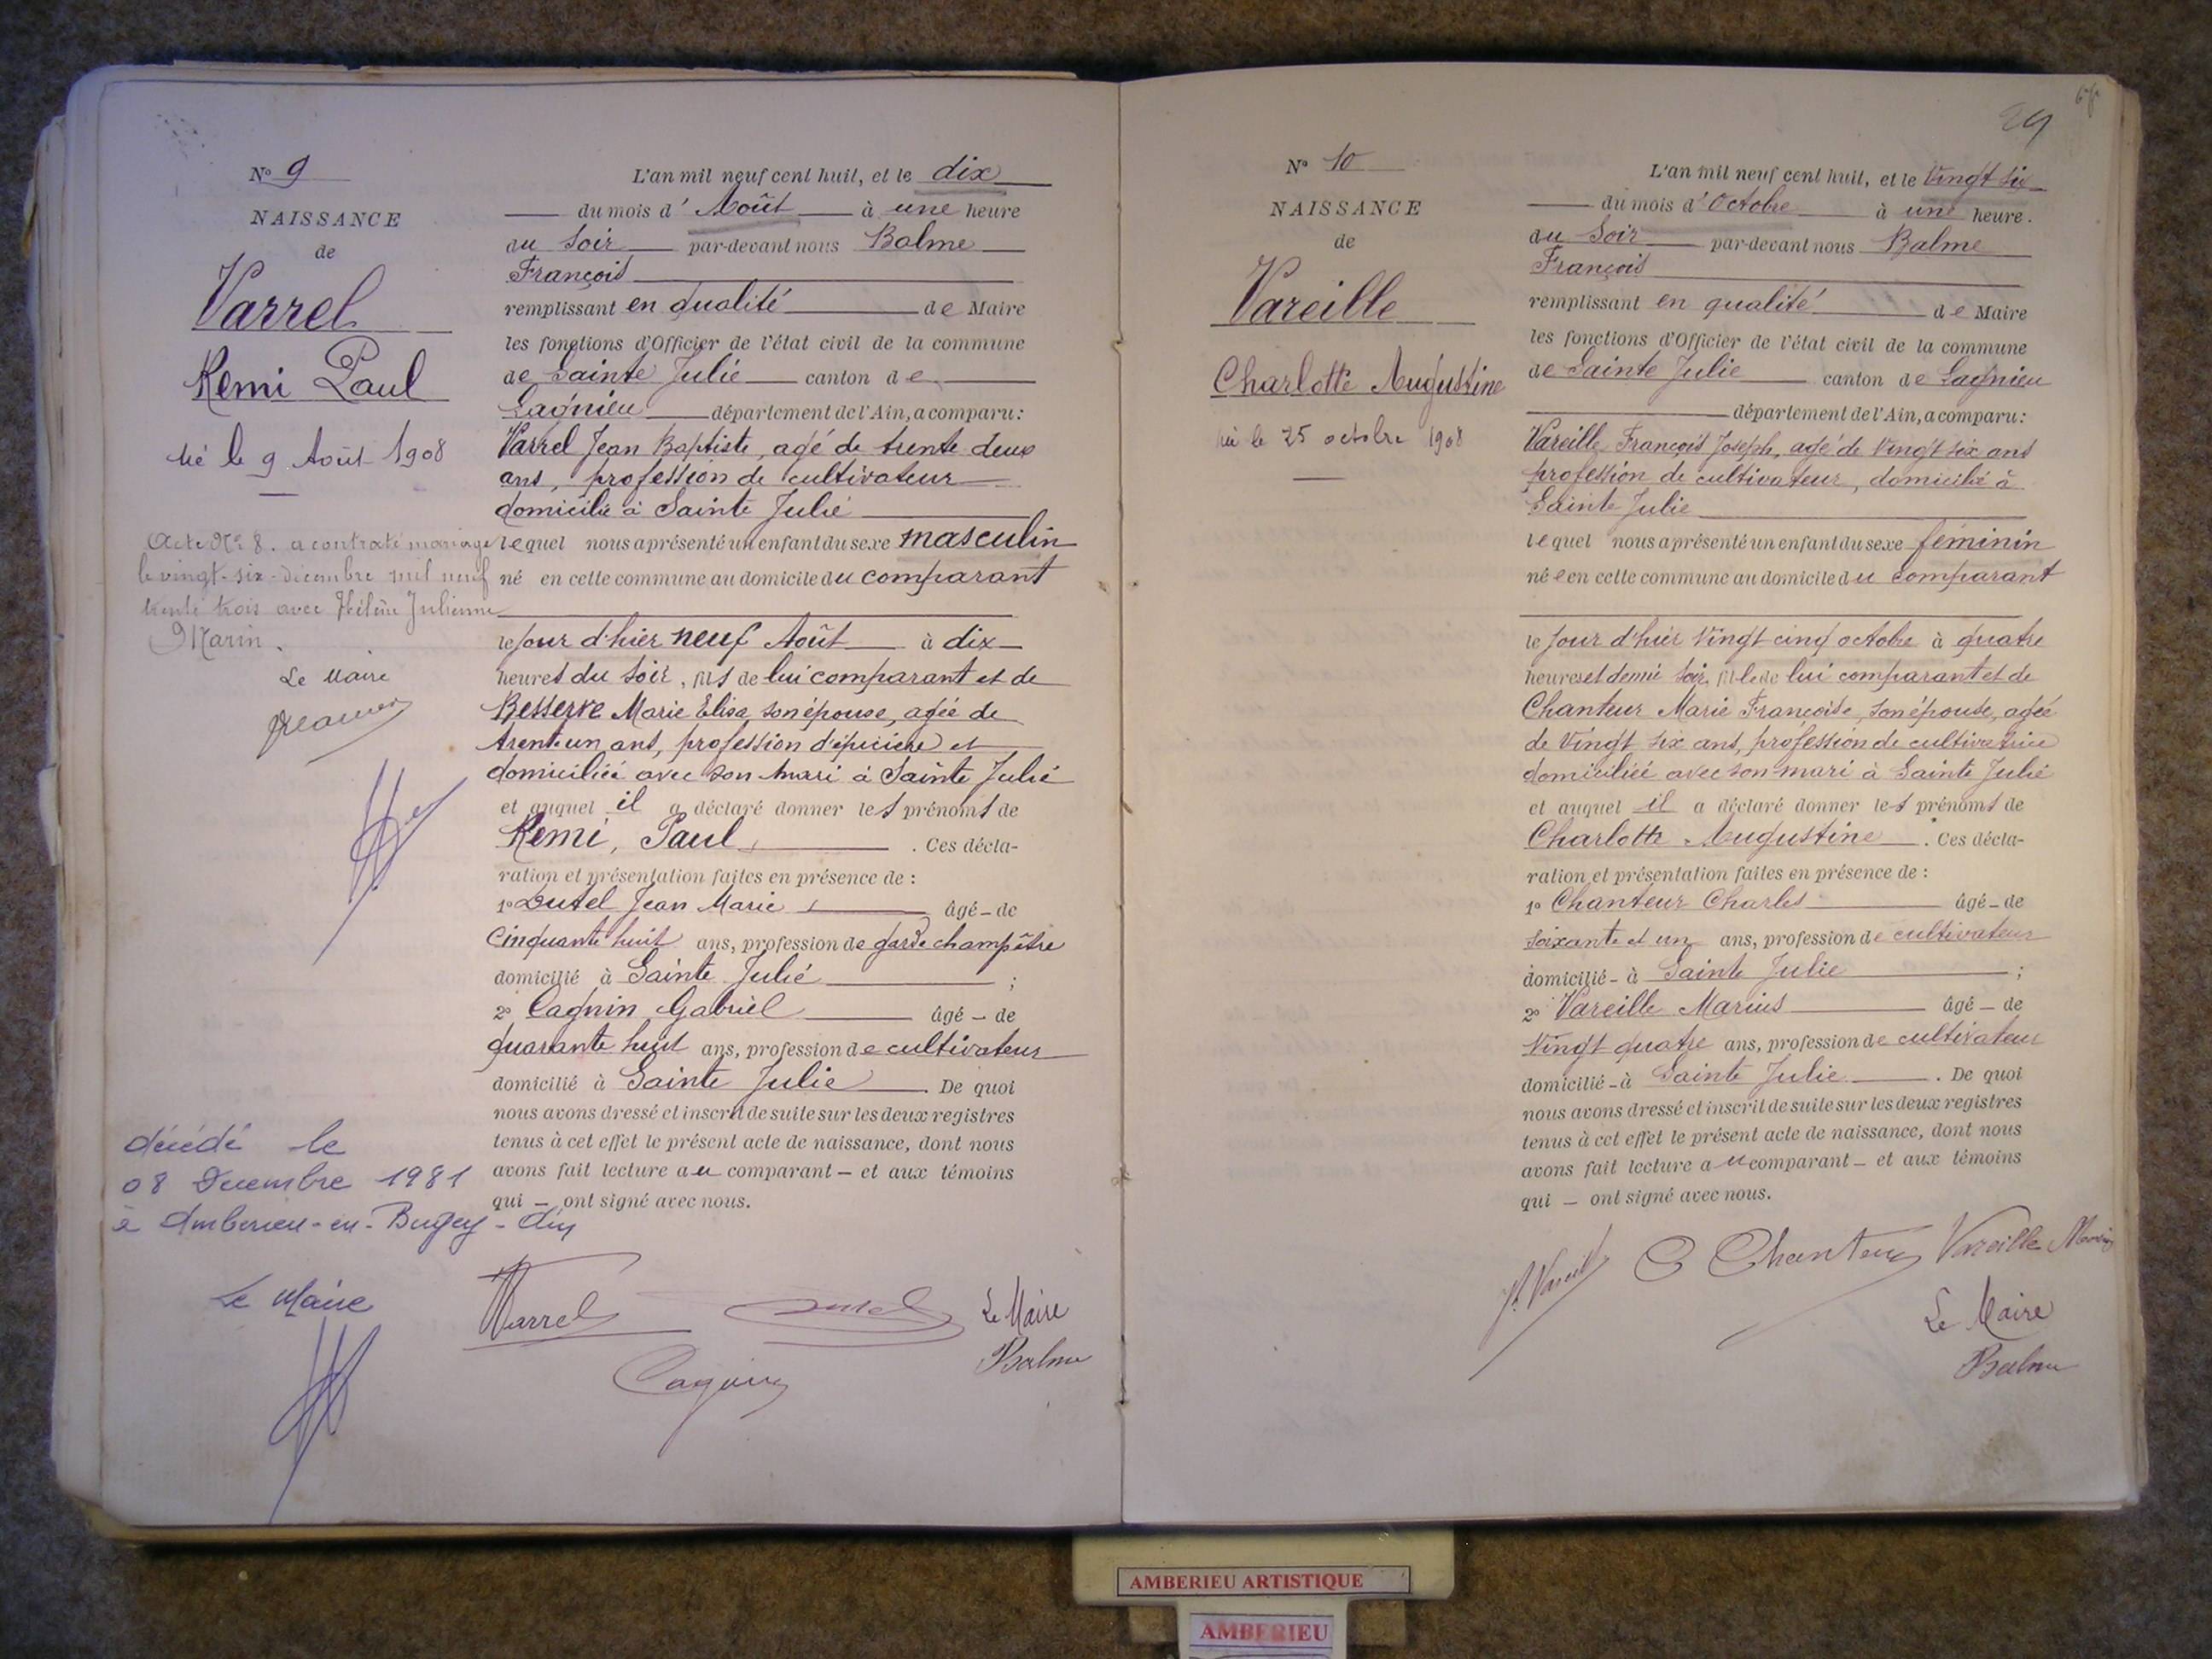 N° 9
NAISSANCE
de
Varrel
Remi Paul
né le 9 Août 1908
Acte N° 8. a contracté mariage
le vingt-six-décembre mil neuf
trente trois avec Hélène Julienne
Marin.
Le Maire
décédé le
08 Decembre 1981
à Amberieu-en-Bugey-Ain
Le Maire
L'an mil neuf cent huit, et le dix
du mois d'Août à une heure
du Soir par-devant nous Balme
François
remplissant en qualité de Maire
les fonctions d'Officier de l'état civil de la commune
de Sainte Julie canton de
Lagnieu département de l'Ain, a comparu:
Varrel Jean Baptiste, agé de trente deux
ans, profession de cultivateur
domicilié à Sainte Julie
lequel nous a présenté un enfant du sexe masculin
né en cette commune au domicile du comparant
le jour d'hier neuf Août à dix
heures du soir, fils de lui comparant et de
Besserve Marie Elisa, son épouse, agée de
trente un ans, profession d'épicière et
domiciliée avec son mari à Sainte Julie
et auquel il a déclaré donner les prénoms de
Remi, Paul. Ces décla-
ration et présentation faites en présence de :
1° Dutel Jean Marie âgé - de
Cinquante huit ans, profession de garde champêtre
domicilié à Sainte Julie ;
2° Cagnin Gabriel âgé - de
quarante huit ans, profession de cultivateur
domicilié à Sainte Julie. De quoi
nous avons dressé et inscrit de suite sur les deux registres
tenus à cet effet le présent acte de naissance, dont nous
avons fait lecture au comparant - et aux témoins
qui - ont signé avec nous.
Varrel Dutel Le Maire
Cagnin Balme
29
N° 10
NAISSANCE
de
Vareille
Charlotte Augustine
né le 25 octobre 1908
L'an mil neuf cent huit, et le Vingt six
du mois d'Octobre à une heure.
du Soir par-devant nous Balme
François
remplissant en qualité de Maire
les fonctions d'Officier de l'état civil de la commune
de Sainte Julie canton de Lagnieu
département de l'Ain, a comparu:
Vareille François Joseph, agé de Vingt six ans
profession de cultivateur, domicilié à
Sainte Julie
lequel nous a présenté un enfant du sexe féminin
née en cette commune au domicile du comparant
le jour d'hier Vingt cinq octobre à quatre
heures et demie soir, fille de lui comparant et de
Chanteur Marie Françoise, son épouse, agée
de Vingt six ans, profession de cultivatrice
domiciliée avec son mari à Sainte Julie
et auquel il a déclaré donner les prénoms de
Charlotte Augustine. Ces décla-
ration et présentation faites en présence de :
1° Chanteur Charles âgé - de
soixante et un ans, profession de cultivateur
domicilié - à Sainte Julie ;
2° Vareille Marius âgé - de
Vingt quatre ans, profession de cultivateur
domicilié - à Sainte Julie. De quoi
nous avons dressé et inscrit de suite sur les deux registres
tenus à cet effet le présent acte de naissance, dont nous
avons fait lecture au comparant - et aux témoins
qui - ont signé avec nous.
C Chanteur Vareille Marius
Le Maire
Balme
AMBERIEU ARTISTIQUE
AMBERIEU